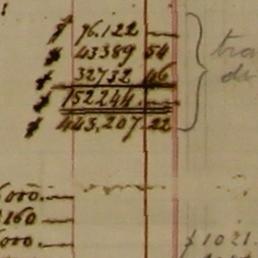 $ 76.122 —
$ 43389 54
$ 32732 46
$ 152244. —
$ 443,207.22
000. —
160 —
000. —
$1021.